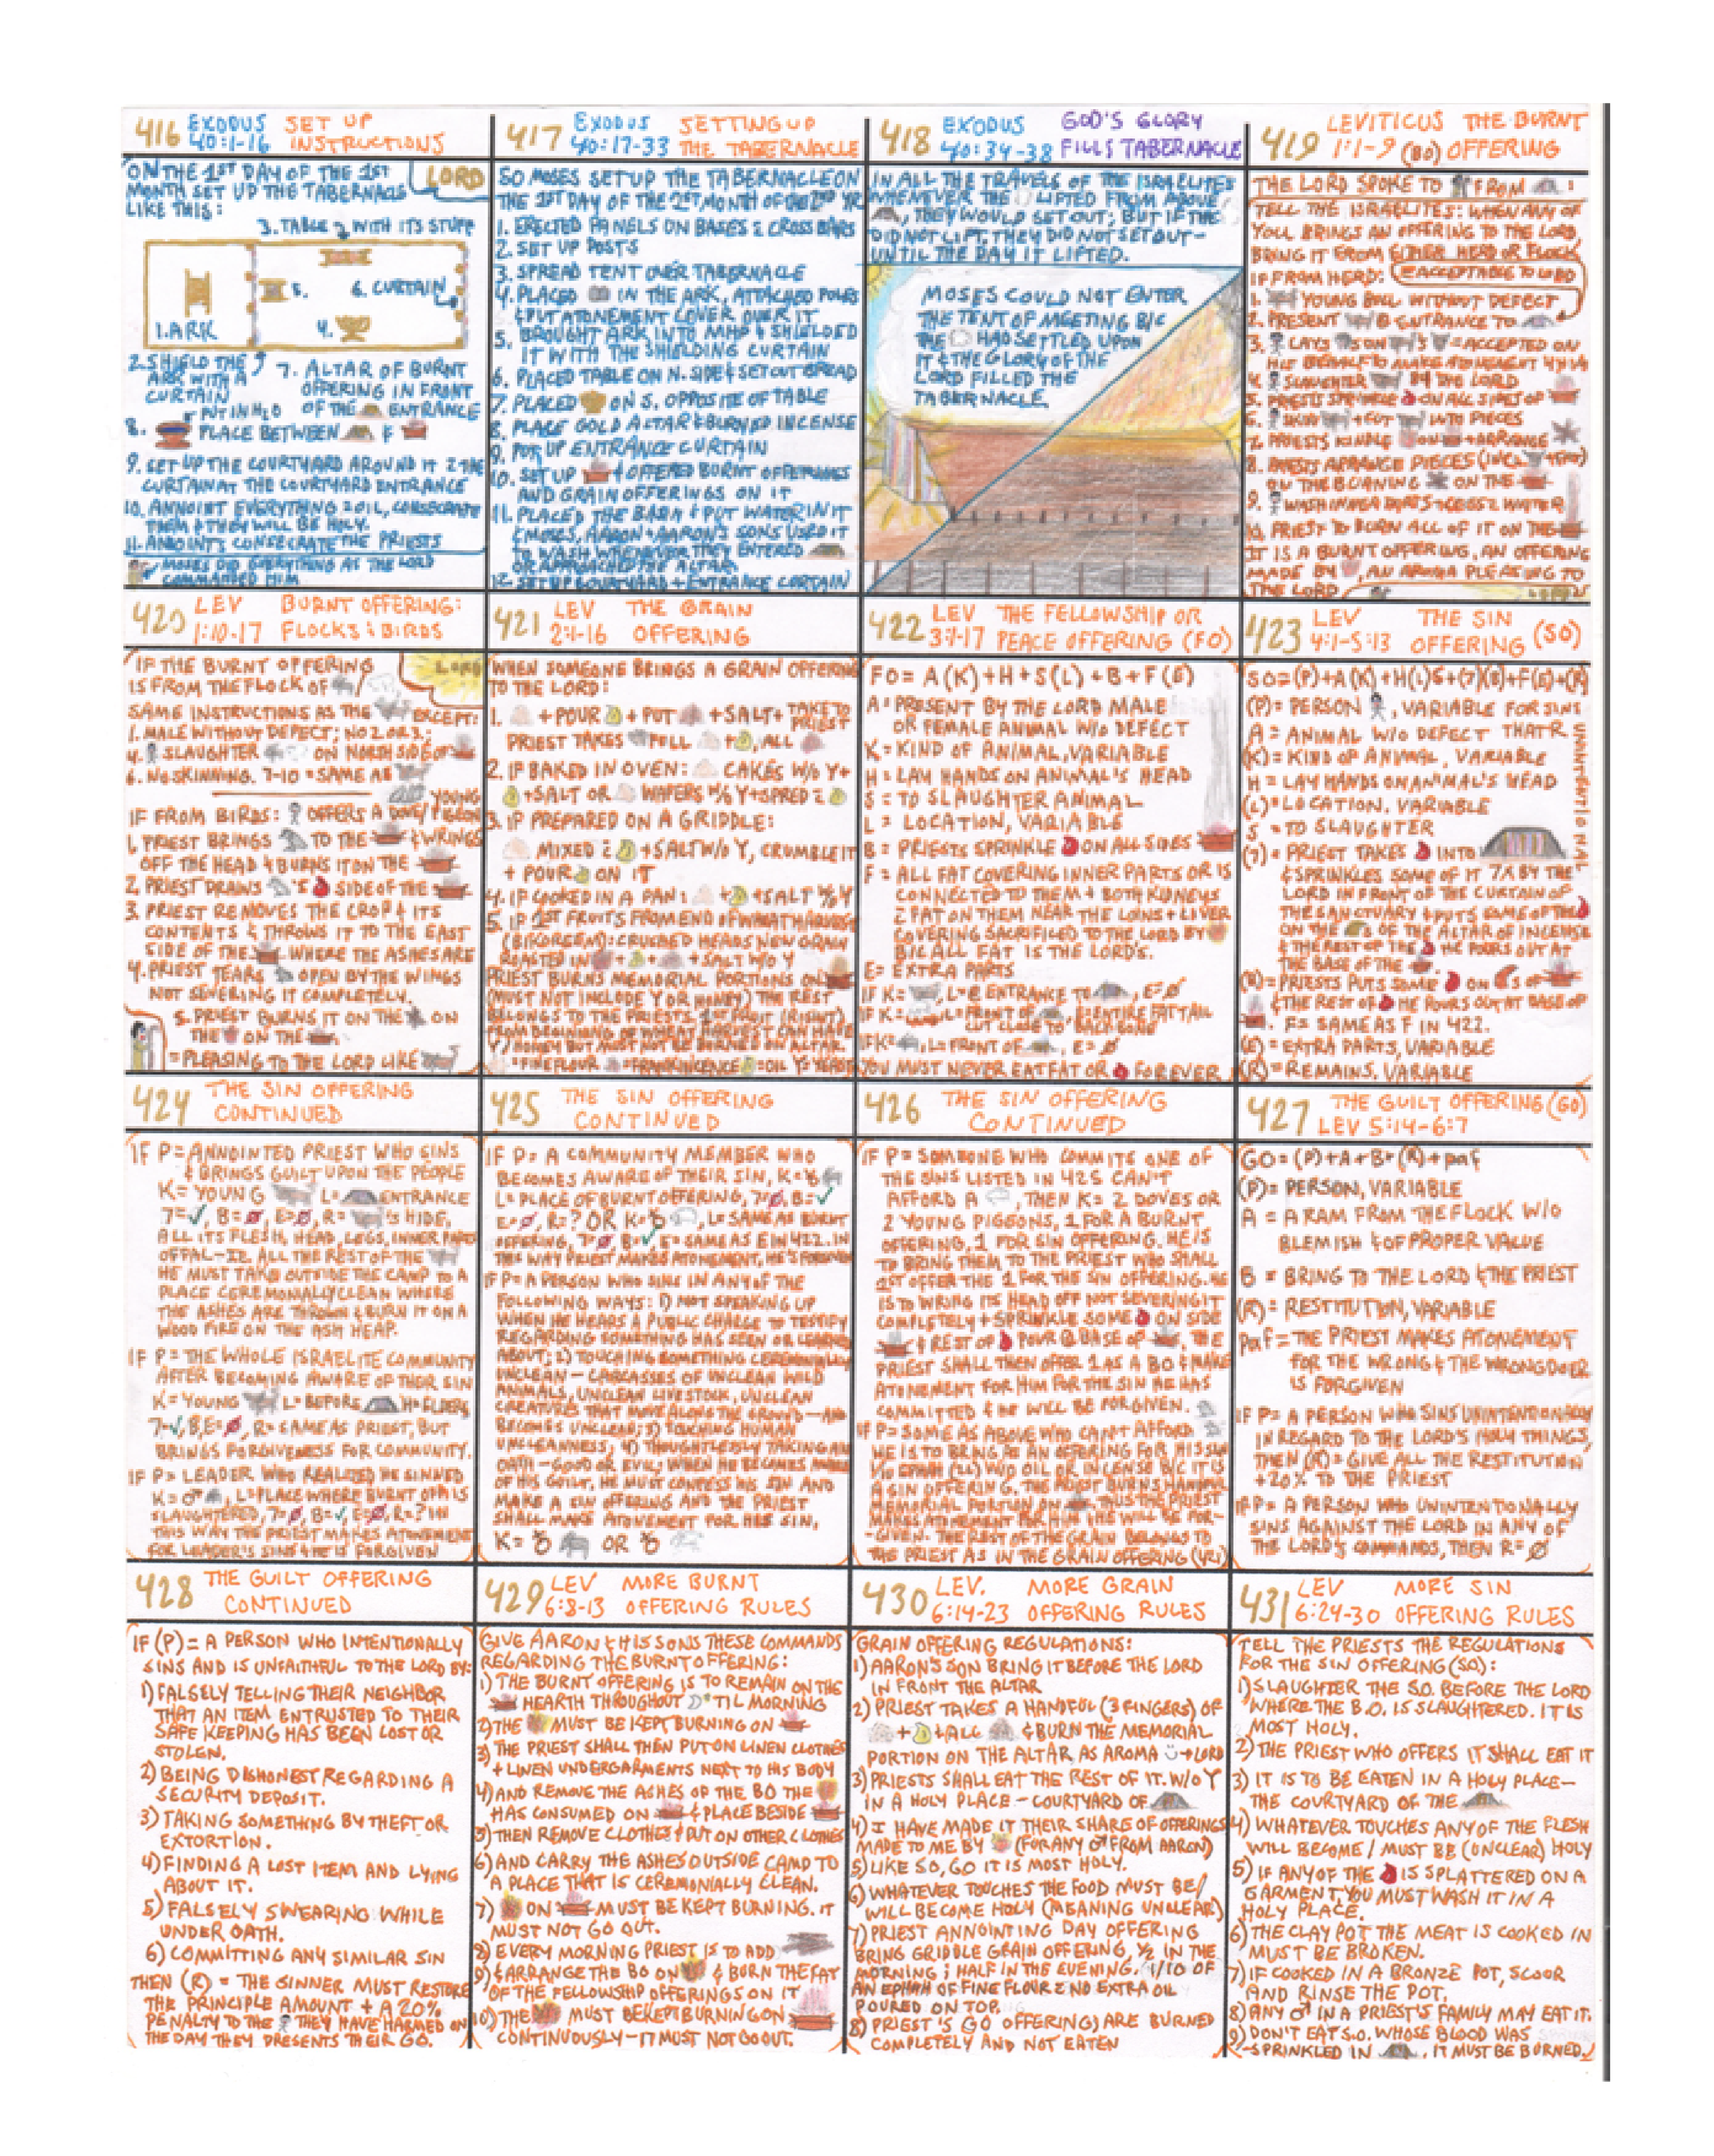 416 EXODUS 40:1-16 SET UP INSTRUCTIONS
ON THE 1ST DAY OF THE 1ST
MONTH SET UP THE TABERNACLE
LIKE THIS:
LORD
3. TABLE WITH ITS STUFF
5. 6. CURTAIN
1. ARK 4.
2. SHIELD THE
ARK WITH A
CURTAIN
7. ALTAR OF BURNT
OFFERING IN FRONT
OF THE ENTRANCE
8. PUT IN H2O
PLACE BETWEEN &
9. SET UP THE COURTYARD AROUND IT & THE
CURTAIN AT THE COURTYARD ENTRANCE
10. ANNOINT EVERYTHING OIL, CONSECRATE
THEM & THEY WILL BE HOLY.
11. ANNOINT & CONSECRATE THE PRIESTS
MOSES DID EVERYTHING AS THE LORD
COMMANDED HIM
417 EXODUS 40:17-33 SETTING UP THE TABERNACLE
SO MOSES SET UP THE TABERNACLE ON
THE 1ST DAY OF THE 1ST MONTH OF THE 2ND YR
1. ERECTED PANELS ON BASES & CROSSBARS
2. SET UP POSTS
3. SPREAD TENT OVER TABERNACLE
4. PLACED IN THE ARK, ATTACHED POLES
& PUT ATONEMENT COVER OVER IT
5. BROUGHT ARK INTO MHP & SHIELDED
IT WITH THE SHIELDING CURTAIN
6. PLACED TABLE ON N. SIDE & SET OUT BREAD
7. PLACED ON S. OPPOSITE OF TABLE
8. PLACE GOLD ALTAR & BURNED INCENSE
9. PUT UP ENTRANCE CURTAIN
10. SET UP & OFFERED BURNT OFFERINGS
AND GRAIN OFFERINGS ON IT
11. PLACED THE BASIN & PUT WATER IN IT
& MOSES, AARON & AARON'S SONS USED IT
TO WASH WHENEVER THEY ENTERED
OR APPROACHED THE ALTAR
12. SET UP COURTYARD + ENTRANCE CURTAIN
418 EXODUS 40:34-38 GOD'S GLORY FILLS TABERNACLE
IN ALL THE TRAVELS OF THE ISRAELITES
WHENEVER THE LIFTED FROM ABOVE
, THEY WOULD SET OUT; BUT IF THE
DID NOT LIFT, THEY DID NOT SET OUT-
UNTIL THE DAY IT LIFTED.
MOSES COULD NOT ENTER
THE TENT OF MEETING B/C
THE HAD SETTLED UPON
IT & THE GLORY OF THE
LORD FILLED THE
TABERNACLE
419 LEVITICUS 1:1-9 THE BURNT (BO) OFFERING
THE LORD SPOKE TO FROM :
TELL THE ISRAELITES: WHEN ANY OF
YOU BRINGS AN OFFERING TO THE LORD,
BRING IT FROM EITHER HERD OR FLOCK
IF FROM HERD: ACCEPTABLE TO LORD
1. YOUNG BULL WITHOUT DEFECT
2. PRESENT @ ENTRANCE TO
3. LAYS ON 'S = ACCEPTED ON
HIS BEHALF TO MAKE ATONEMENT
4. SLAUGHTER BY THE LORD
5. PRIESTS SPRINKLE ON ALL SIDES OF
6. SKIN + CUT INTO PIECES
7. PRIESTS KINDLE ON + ARRANGE
8. PRIESTS ARRANGE PIECES
ON THE BURNING ON THE
9. WASH INNER PARTS + LEGS WATER
10. PRIEST TO BURN ALL OF IT ON THE
IT IS A BURNT OFFERING, AN OFFERING
MADE BY , AN AROMA PLEASING TO
THE LORD
420 LEV 1:10-17 BURNT OFFERING: FLOCKS & BIRDS
IF THE BURNT OFFERING
IS FROM THE FLOCK OF
LORD
SAME INSTRUCTIONS AS THE EXCEPT:
1. MALE WITHOUT DEFECT; NO 2 OR 3;
4. SLAUGHTER ON NORTH SIDE OF
6. NO SKINNING. 7-10 = SAME AS
IF FROM BIRDS: OFFERS A DOVE/YOUNG PIGEON
1. PRIEST BRINGS TO THE & WRINGS
OFF THE HEAD & BURNS IT ON THE
2. PRIEST DRAINS 'S SIDE OF THE
3. PRIEST REMOVES THE CROP & ITS
CONTENTS & THROWS IT TO THE EAST
SIDE OF THE WHERE THE ASHES ARE
4. PRIEST TEARS OPEN BY THE WINGS
NOT SEVERING IT COMPLETELY.
5. PRIEST BURNS IT ON THE ON
THE ON THE
= PLEASING TO THE LORD LIKE
421 LEV 2:1-16 THE GRAIN OFFERING
WHEN SOMEONE BRINGS A GRAIN OFFERING
TO THE LORD:
1. + POUR + PUT + SALT + TAKE TO PRIEST
PRIEST TAKES FULL + , ALL
2. IF BAKED IN OVEN: CAKES W/O Y +
+ SALT OR WAFERS W/O Y + SPRED
3. IF PREPARED ON A GRIDDLE:
MIXED + SALT W/O Y, CRUMBLE IT
+ POUR ON IT
4. IF COOKED IN A PAN: + + SALT W/O Y
5. IF 1ST FRUITS FROM END OF WHEAT HARVEST
: CRUSHED HEADS NEW GRAIN
ROASTED IN + + + SALT W/O Y
PRIEST BURNS MEMORIAL PORTIONS ON
(MUST NOT INCLUDE Y OR HONEY) THE REST
BELONGS TO THE PRIESTS. 1ST FRUIT
FROM BEGINNING OF WHEAT HARVEST CAN HAVE
Y/HONEY BUT MUST NOT BE BURNED ON ALTAR.
= FINE FLOUR = FRANKINCENCE = OIL Y = YEAST
422 LEV 3:1-17 THE FELLOWSHIP OR PEACE OFFERING (FO)
FO = A(K) + H + S(L) + B + F(E)
A = PRESENT BY THE LORD MALE
OR FEMALE ANIMAL W/O DEFECT
K = KIND OF ANIMAL, VARIABLE
H = LAY HANDS ON ANIMAL'S HEAD
S = TO SLAUGHTER ANIMAL
L = LOCATION, VARIABLE
B = PRIESTS SPRINKLE ON ALL SIDES
F = ALL FAT COVERING INNER PARTS OR IS
CONNECTED TO THEM + BOTH KIDNEYS
FAT ON THEM NEAR THE LOINS + LIVER
COVERING SACRIFICED TO THE LORD BY
B/C ALL FAT IS THE LORD'S.
E = EXTRA PARTS
IF K = , L = @ ENTRANCE TO , E = Ø
IF K = , L = FRONT OF , E = ENTIRE FAT TAIL
CUT CLOSE TO BACKBONE
IF K = , L = FRONT OF , E = Ø
YOU MUST NEVER EAT FAT OR FOREVER
423 LEV 4:1-5:13 THE SIN OFFERING (SO)
SO = (P) + A(K) + H(L)S + (7)(B) + F(E) + (R)
(P) = PERSON , VARIABLE FOR SINS
UNINTENTIONAL
A = ANIMAL W/O DEFECT THAT R
(K) = KIND OF ANIMAL, VARIABLE
H = LAY HANDS ON ANIMAL'S HEAD
(L) = LOCATION, VARIABLE
S = TO SLAUGHTER
(7) = PRIEST TAKES INTO
& SPRINKLES SOME OF IT 7X BY THE
LORD IN FRONT OF THE CURTAIN OF
THE SANCTUARY & PUTS SOME OF THE
ON THE 'S OF THE ALTAR OF INCENSE
& THE REST OF THE HE POURS OUT AT
THE BASE OF THE .
(B) = PRIESTS PUTS SOME ON 'S OF
& THE REST OF HE POURS OUT AT BASE OF
. F = SAME AS F IN 422.
(E) = EXTRA PARTS, VARIABLE
(R) = REMAINS, VARIABLE
424 THE SIN OFFERING CONTINUED
IF P = ANNOINTED PRIEST WHO SINS
& BRINGS GUILT UPON THE PEOPLE
K = YOUNG L = ENTRANCE
7 = ✓, B = Ø, E = Ø, R = 'S HIDE,
ALL ITS FLESH, HEAD, LEGS, INNER PARTS
OFFAL-I.E. ALL THE REST OF THE
HE MUST TAKE OUTSIDE THE CAMP TO A
PLACE CEREMONIALLY CLEAN WHERE
THE ASHES ARE THROWN & BURN IT ON A
WOOD FIRE ON THE ASH HEAP.
IF P = THE WHOLE ISRAELITE COMMUNITY
AFTER BECOMING AWARE OF THEIR SIN
K = YOUNG L = BEFORE H = ELDERS
7 = ✓, B,E = Ø, R = SAME AS PRIEST, BUT
BRINGS FORGIVENESS FOR COMMUNITY.
IF P = LEADER WHO REALIZED HE SINNED
K = ♂ , L = PLACE WHERE BURNT OFF. IS
SLAUGHTERED, 7 = Ø, B = ✓, E = Ø, R = ? IN
THIS WAY THE PRIEST MAKES ATONEMENT
FOR LEADER'S SINS & HE IS FORGIVEN
425 THE SIN OFFERING CONTINUED
IF P = A COMMUNITY MEMBER WHO
BECOMES AWARE OF THEIR SIN, K =
L = PLACE OF BURNT OFFERING, 7 = Ø, B = ✓
E = Ø, R = ? OR K = , L = SAME AS BURNT
OFFERING, 7 = Ø B = ✓ E = SAME AS E IN 422. IN
THIS WAY PRIEST MAKES ATONEMENT, HE'S FORGIVEN
IF P = A PERSON WHO SINS IN ANY OF THE
FOLLOWING WAYS: 1) NOT SPEAKING UP
WHEN HE HEARS A PUBLIC CHARGE TO TESTIFY
REGARDING SOMETHING HAS SEEN OR LEARNED
ABOUT; 2) TOUCHING SOMETHING CEREMONIALLY
UNCLEAN - CARCASSES OF UNCLEAN WILD
ANIMALS, UNCLEAN LIVESTOCK, UNCLEAN
CREATURES THAT MOVE ALONG THE GROUND - AND
BECOMES UNCLEAN; 3) TOUCHING HUMAN
UNCLEANNESS; 4) THOUGHTLESSLY TAKING AN
OATH - GOOD OR EVIL; WHEN HE BECOMES AWARE
OF HIS GUILT, HE MUST CONFESS HIS SIN AND
MAKE A SIN OFFERING AND THE PRIEST
SHALL MAKE ATONEMENT FOR HIS SIN,
K = OR
426 THE SIN OFFERING CONTINUED
IF P = SOMEONE WHO COMMITS ONE OF
THE SINS LISTED IN 425 CAN'T
AFFORD A , THEN K = 2 DOVES OR
2 YOUNG PIGEONS, 1 FOR A BURNT
OFFERING, 1 FOR SIN OFFERING. HE IS
TO BRING THEM TO THE PRIEST WHO SHALL
1ST OFFER THE 1 FOR THE SIN OFFERING. HE
IS TO WRING ITS HEAD OFF NOT SEVERING IT
COMPLETELY + SPRINKLE SOME ON SIDE
& REST OF POUR @ BASE OF , THE
PRIEST SHALL THEN OFFER 1 AS A BO & MAKE
ATONEMENT FOR HIM FOR THE SIN HE HAS
COMMITTED & HE WILL BE FORGIVEN.
IF P = SOME AS ABOVE WHO CAN'T AFFORD
HE IS TO BRING AS AN OFFERING FOR HIS SIN
1/10 EPHAH (2L) W/O OIL OR INCENSE B/C IT IS
A SIN OFFERING. THE PRIEST BURNS HANDFUL
MEMORIAL PORTION ON . THUS THE PRIEST
MAKES ATONEMENT FOR HIM & HE WILL BE FOR-
-GIVEN. THE REST OF THE GRAIN BELONGS TO
THE PRIEST AS IN THE GRAIN OFFERING (421)
427 THE GUILT OFFERING (GO) LEV 5:14-6:7
GO = (P) + A + B + (R) + paf
(P) = PERSON, VARIABLE
A = A RAM FROM THE FLOCK W/O
BLEMISH & OF PROPER VALUE
B = BRING TO THE LORD & THE PRIEST
(R) = RESTITUTION, VARIABLE
paf = THE PRIEST MAKES ATONEMENT
FOR THE WRONG & THE WRONGDOER
IS FORGIVEN
IF P = A PERSON WHO SINS UNINTENTIONALLY
IN REGARD TO THE LORD'S HOLY THINGS,
THEN (R) = GIVE ALL THE RESTITUTION
+ 20% TO THE PRIEST
IF P = A PERSON WHO UNINTENTIONALLY
SINS AGAINST THE LORD IN ANY OF
THE LORD'S COMMANDS, THEN R = Ø
428 THE GUILT OFFERING CONTINUED
IF (P) = A PERSON WHO INTENTIONALLY
SINS AND IS UNFAITHFUL TO THE LORD BY:
1) FALSELY TELLING THEIR NEIGHBOR
THAT AN ITEM ENTRUSTED TO THEIR
SAFE KEEPING HAS BEEN LOST OR
STOLEN.
2) BEING DISHONEST REGARDING A
SECURITY DEPOSIT.
3) TAKING SOMETHING BY THEFT OR
EXTORTION.
4) FINDING A LOST ITEM AND LYING
ABOUT IT.
5) FALSELY SWEARING WHILE
UNDER OATH.
6) COMMITTING ANY SIMILAR SIN
THEN (R) = THE SINNER MUST RESTORE
THE PRINCIPLE AMOUNT + A 20%
PENALTY TO THE THEY HAVE HARMED ON
THE DAY THEY PRESENTS THEIR GO.
429 LEV 6:8-13 MORE BURNT OFFERING RULES
GIVE AARON & HIS SONS THESE COMMANDS
REGARDING THE BURNT OFFERING:
1) THE BURNT OFFERING IS TO REMAIN ON THE
HEARTH THROUGHOUT TIL MORNING
2) THE MUST BE KEPT BURNING ON
3) THE PRIEST SHALL THEN PUT ON LINEN CLOTHES
+ LINEN UNDERGARMENTS NEXT TO HIS BODY
4) AND REMOVE THE ASHES OF THE BO THE
HAS CONSUMED ON & PLACE BESIDE
5) THEN REMOVE CLOTHES & PUT ON OTHER CLOTHES
6) AND CARRY THE ASHES OUTSIDE CAMP TO
A PLACE THAT IS CEREMONIALLY CLEAN.
7) ON MUST BE KEPT BURNING. IT
MUST NOT GO OUT.
8) EVERY MORNING PRIEST IS TO ADD
9) & ARRANGE THE BO ON & BURN THE FAT
OF THE FELLOWSHIP OFFERINGS ON IT
10) THE MUST BE KEPT BURNING ON
CONTINUOUSLY - IT MUST NOT GO OUT.
430 LEV. 6:14-23 MORE GRAIN OFFERING RULES
GRAIN OFFERING REGULATIONS:
1) AARON'S SON BRING IT BEFORE THE LORD
IN FRONT THE ALTAR
2) PRIEST TAKES A HANDFUL (3 FINGERS) OF
+ & ALL & BURN THE MEMORIAL
PORTION ON THE ALTAR AS AROMA → LORD
3) PRIESTS SHALL EAT THE REST OF IT. W/O Y
IN A HOLY PLACE - COURTYARD OF
4) I HAVE MADE IT THEIR SHARE OF OFFERINGS
MADE TO ME BY (FOR ANY ♂ FROM AARON)
5) LIKE SO, GO IT IS MOST HOLY.
6) WHATEVER TOUCHES THE FOOD MUST BE/
WILL BECOME HOLY (MEANING UNCLEAR)
7) PRIEST ANNOINTING DAY OFFERING
BRING GRIDDLE GRAIN OFFERING, 1/2 IN THE
MORNING ; HALF IN THE EVENING. 1/10 OF
AN EPHAH OF FINE FLOUR NO EXTRA OIL
POURED ON TOP.
8) PRIEST'S GO OFFERING) ARE BURNED
COMPLETELY AND NOT EATEN
431 LEV 6:24-30 MORE SIN OFFERING RULES
TELL THE PRIESTS THE REGULATIONS
FOR THE SIN OFFERING (SO):
1) SLAUGHTER THE S.O. BEFORE THE LORD
WHERE THE B.O. IS SLAUGHTERED. IT IS
MOST HOLY.
2) THE PRIEST WHO OFFERS IT SHALL EAT IT
3) IT IS TO BE EATEN IN A HOLY PLACE-
THE COURTYARD OF THE
4) WHATEVER TOUCHES ANY OF THE FLESH
WILL BECOME / MUST BE (UNCLEAR) HOLY
5) IF ANY OF THE IS SPLATTERED ON A
GARMENT, YOU MUST WASH IT IN A
HOLY PLACE.
6) THE CLAY POT THE MEAT IS COOKED IN
MUST BE BROKEN.
7) IF COOKED IN A BRONZE POT, SCOOR
AND RINSE THE POT.
8) ANY ♂ IN A PRIEST'S FAMILY MAY EAT IT.
9) DON'T EAT S.O. WHOSE BLOOD WAS
SPRINKLED IN . IT MUST BE BURNED.